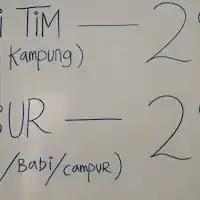 i TiM — 2
Kampung)
BUR — 2
/Babi/campuR)